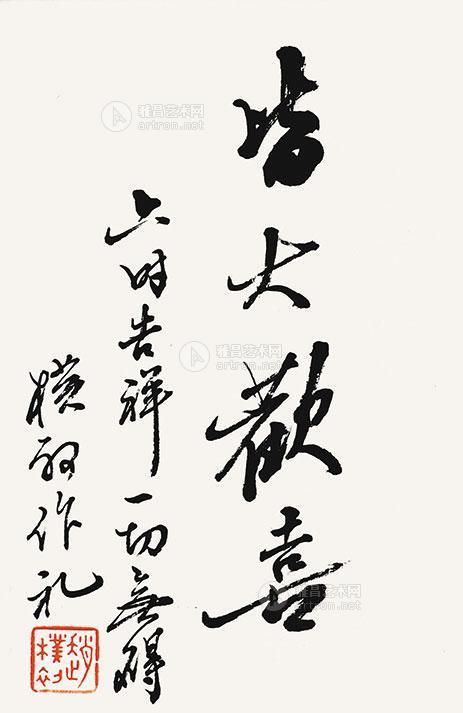 皆大歡喜
六时吉祥一切無碍
樸初作礼
趙樸初
雅昌艺术网
artron.net
雅昌艺术网
artron.net
雅昌艺术网
artron.net